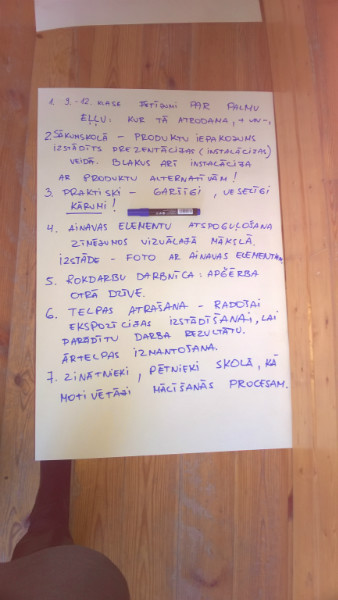 1. 9.-12. KLASE PĒTĪJUMI PAR PALMU
EĻĻU: KUR TĀ ATRODAMA, + UN -.
2. SĀKUMSKOLĀ - PRODUKTU IEPAKOJUMS
IZSTĀDĪTS PREZENTĀCIJAS (INSTALĀCIJAS)
VEIDĀ. BLAKUS ARĪ INSTALĀCIJA
AR PRODUKTU ALTERNATĪVĀM!
3. PRAKTISKI - GARŠĪGI, VESELĪGI
KĀRUMI!
4. AINAVAS ELEMENTU ATSPOGUĻOŠANA
ZĪMĒJUMOS VIZUĀLAJĀ MĀKSLĀ.
IZSTĀDE - FOTO AR AINAVAS ELEMENTIEM.
5. ROKDARBU DARBNĪCA: APĢĒRBA
OTRĀ DZĪVE.
6. TELPAS ATRAŠANA - RADOŠAI
EKSPOZĪCIJAS IZSTĀDĪŠANAI, LAI
PARĀDĪTU DARBA REZULTĀTU.
ĀRTELPAS IZMANTOŠANA.
7. ZINĀTNIEKI, PĒTNIEKI SKOLĀ, KĀ
MOTIVĒTĀJI MĀCĪŠANĀS PROCESAM.